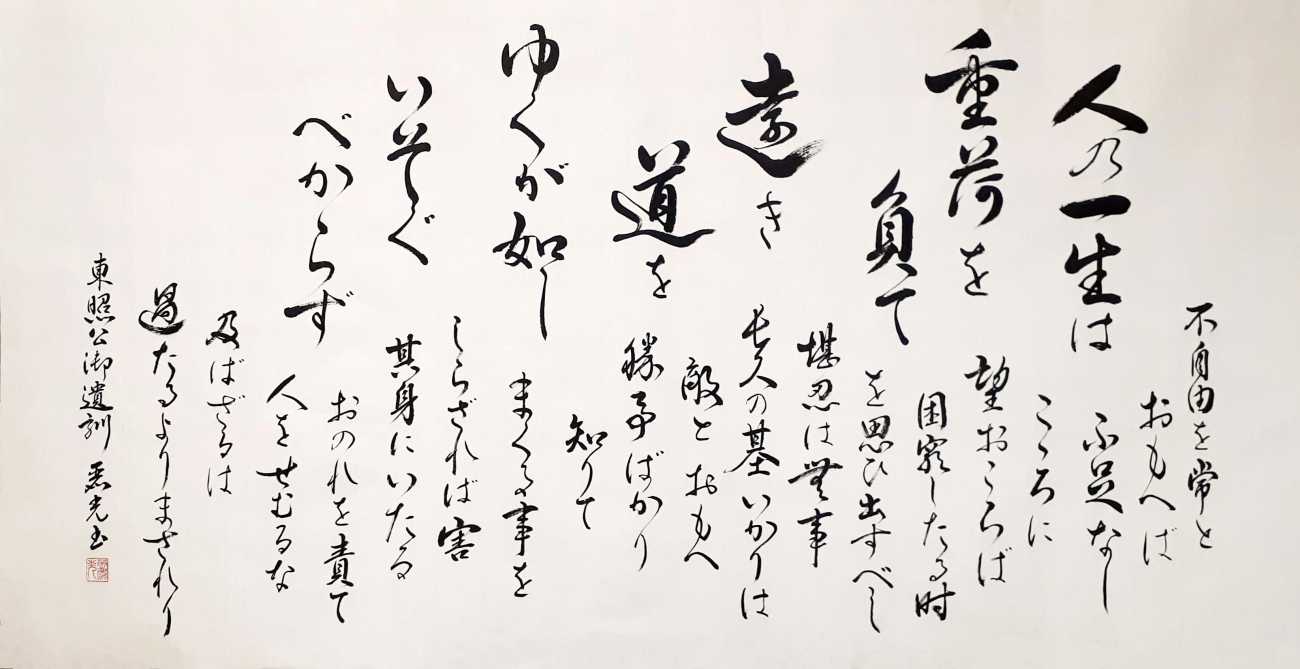 人の一生は
重荷を
負て
遠き
道を
ゆくが如し
いそぐ
べからず
不自由を常と
おもへば
不足なし
こゝろに
望おこらば
困窮したる時
を思ひ出すべし
堪忍は無事
長久の基いかりは
敵とおもへ
勝事ばかり
知りて
まくる事を
しらざれば害
其身にいたる
おのれを責て
人をせむるな
及ばざるは
過たるよりまされり
東照公御遺訓